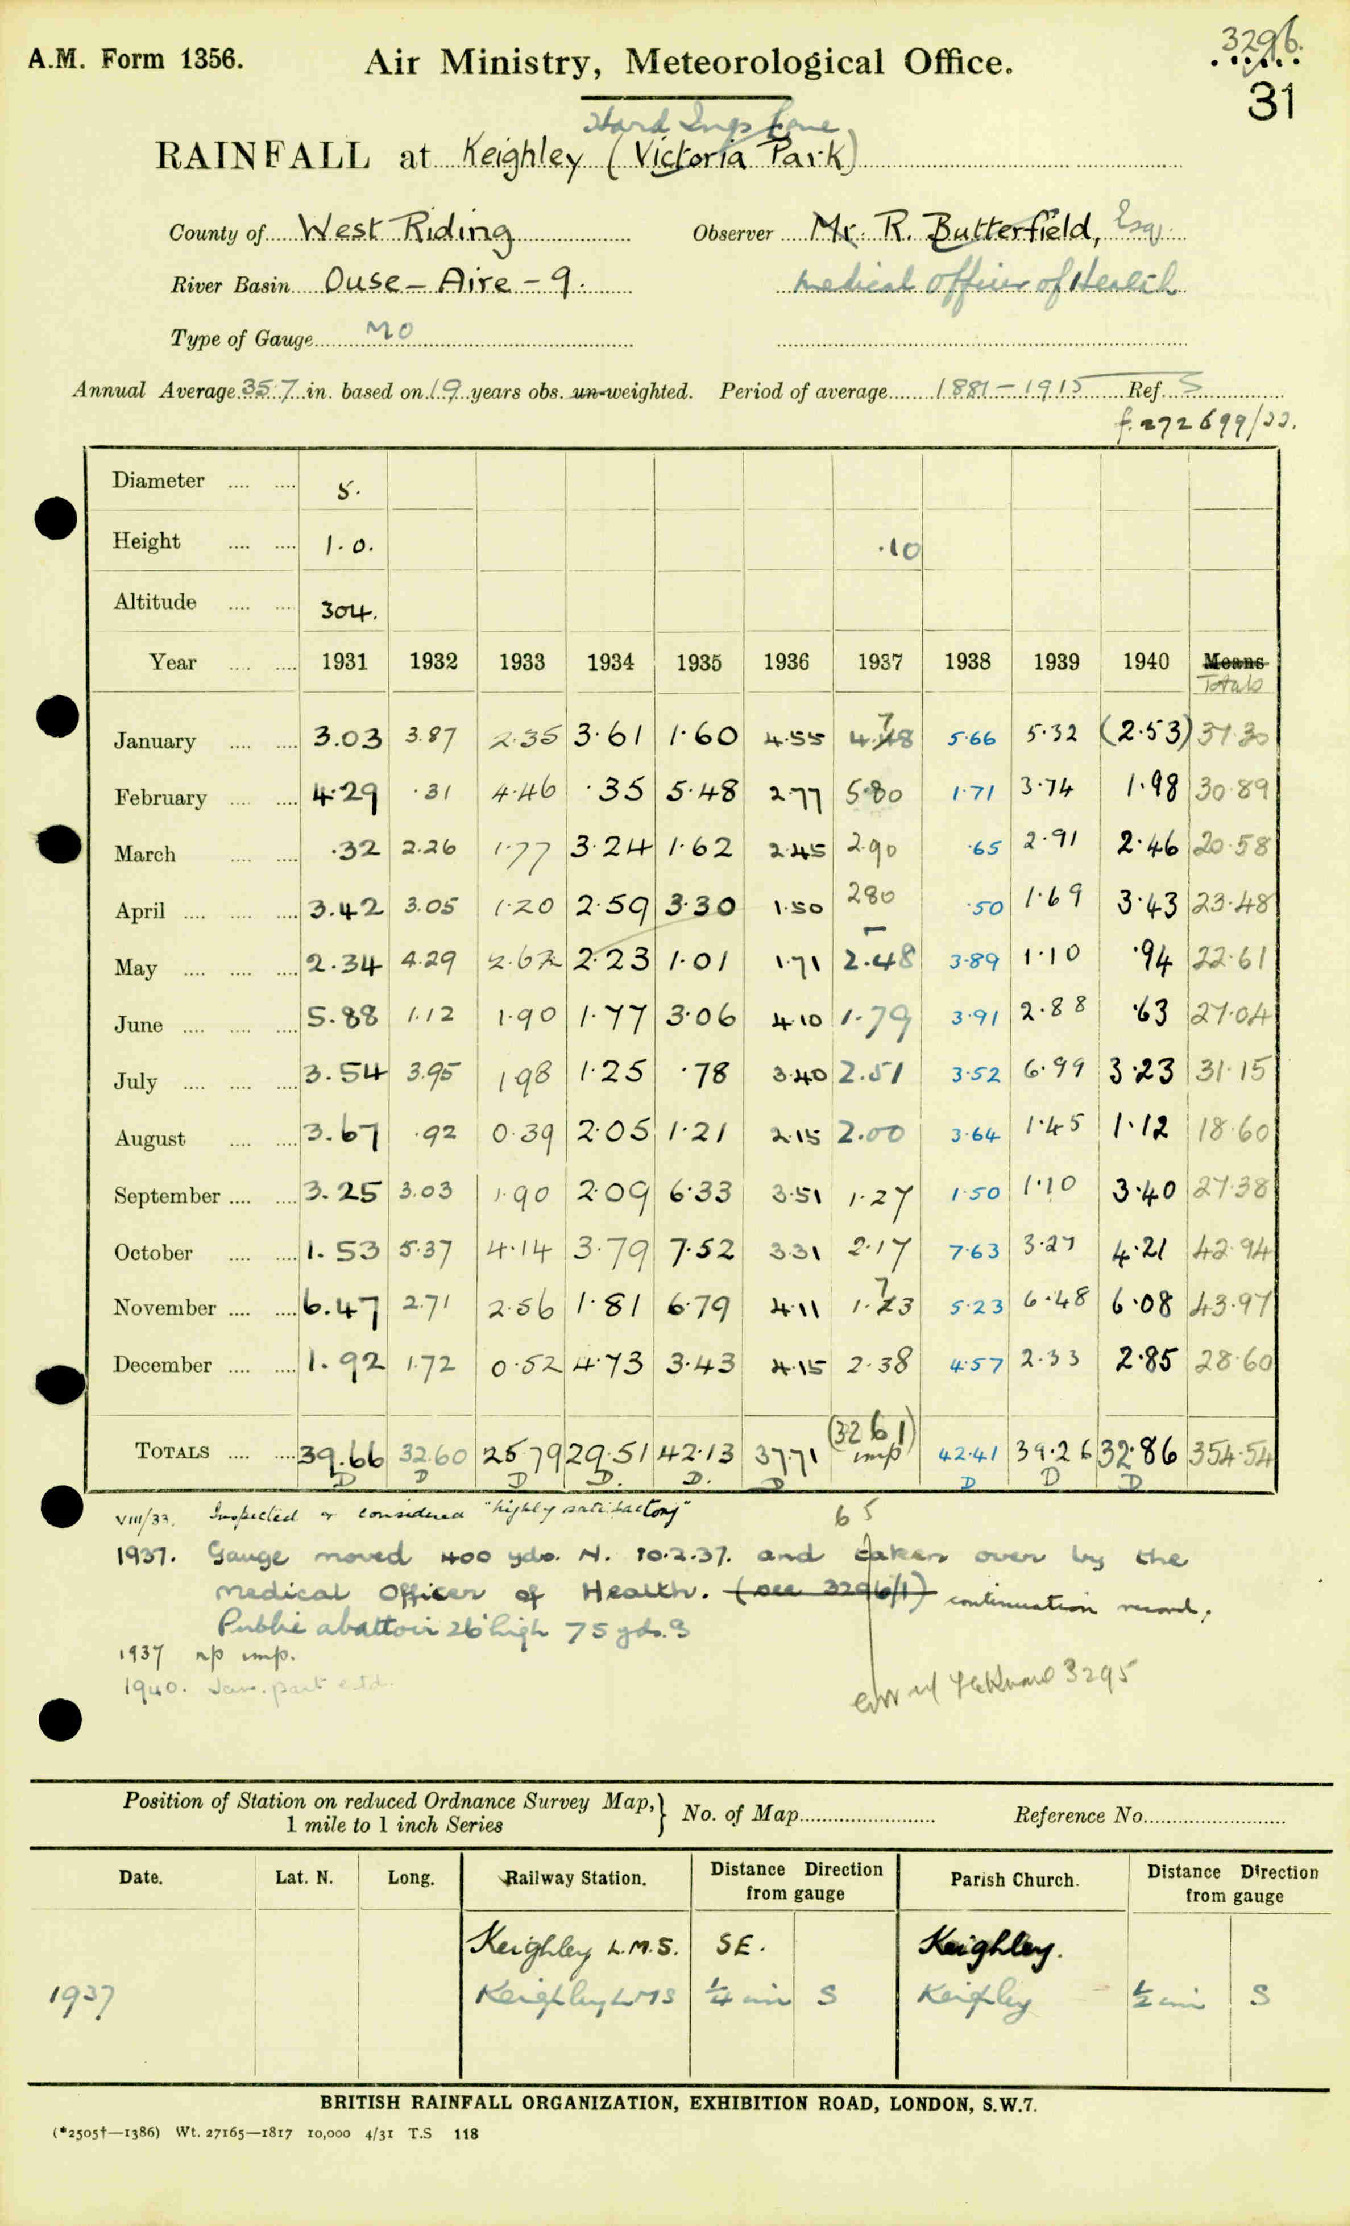 3296.
A.M. Form 1356. Air Ministry, Meteorological Office.
31
Hard Ings Lane
RAINFALL at Keighley (Victoria Park)
County of West Riding Observer Mr. R. Butterfield, Esq.
River Basin Ouse - Aire - 9. Medical Officer of Health
Type of Gauge MO
Annual Average 35.7 in. based on 19 years obs. un-weighted. Period of average 1881-1915 Ref. S
f.272699/22.
Diameter .... .... 5.
Height .... .... 1.0. .10
Altitude .... .... 304.
Year .... .... 1931 1932 1933 1934 1935 1936 1937 1938 1939 1940 Means
Totals
January .... .... 3.03 3.87 2.35 3.61 1.60 4.55 4.78 5.66 5.32 (2.53) 37.30
February .... .... 4.29 .31 4.46 .35 5.48 2.77 5.80 1.71 3.74 1.98 30.89
March .... .... .32 2.26 1.77 3.24 1.62 2.45 2.90 .65 2.91 2.46 20.58
April .... .... .... 3.42 3.05 1.20 2.59 3.30 1.50 2.80 .50 1.69 3.43 23.48
May .... .... .... 2.34 4.29 2.62 2.23 1.01 1.71 2.48 3.89 1.10 .94 22.61
June .... .... .... 5.88 1.12 1.90 1.77 3.06 4.10 1.79 3.91 2.88 .63 27.04
July .... .... .... 3.54 3.95 1.98 1.25 .78 3.40 2.51 3.52 6.99 3.23 31.15
August .... .... 3.67 .92 0.39 2.05 1.21 2.15 2.00 3.64 1.45 1.12 18.60
September .... .... 3.25 3.03 1.90 2.09 6.33 3.51 1.27 1.50 1.10 3.40 27.38
October .... .... 1.53 5.37 4.14 3.79 7.52 3.31 2.17 7.63 3.27 4.21 42.94
November .... .... 6.47 2.71 2.56 1.81 6.79 4.11 1.73 5.23 6.48 6.08 43.97
December .... .... 1.92 1.72 0.52 4.73 3.43 4.15 2.38 4.57 2.33 2.85 28.60
TOTALS .... .... 39.66 32.60 25.79 29.51 42.13 37.71 (32.61) imp 42.41 39.26 32.86 354.54
D D D D. D. D D D D
VIII/33. Inspected & considered "highly satisfactory" 65
1937. Gauge moved 400 yds. N. 10.2.37. and taken over by the
Medical Officer of Health. (see 3296/1) continuation record.
Public abattoir 26' high 75 yds. S
1937 np imp.
1940. Jan. part estd.
3295
Position of Station on reduced Ordnance Survey Map, } No. of Map Reference No.
1 mile to 1 inch Series
Date. Lat. N. Long. Railway Station. Distance Direction from gauge Parish Church. Distance Direction from gauge
Keighley L.M.S. SE. Keighley.
1937 Keighley LMS ¼ mi S Keighley ½ mi S
BRITISH RAINFALL ORGANIZATION, EXHIBITION ROAD, LONDON, S.W.7.
(*2505†—1386) Wt. 27165—1817 10,000 4/31 T.S 118